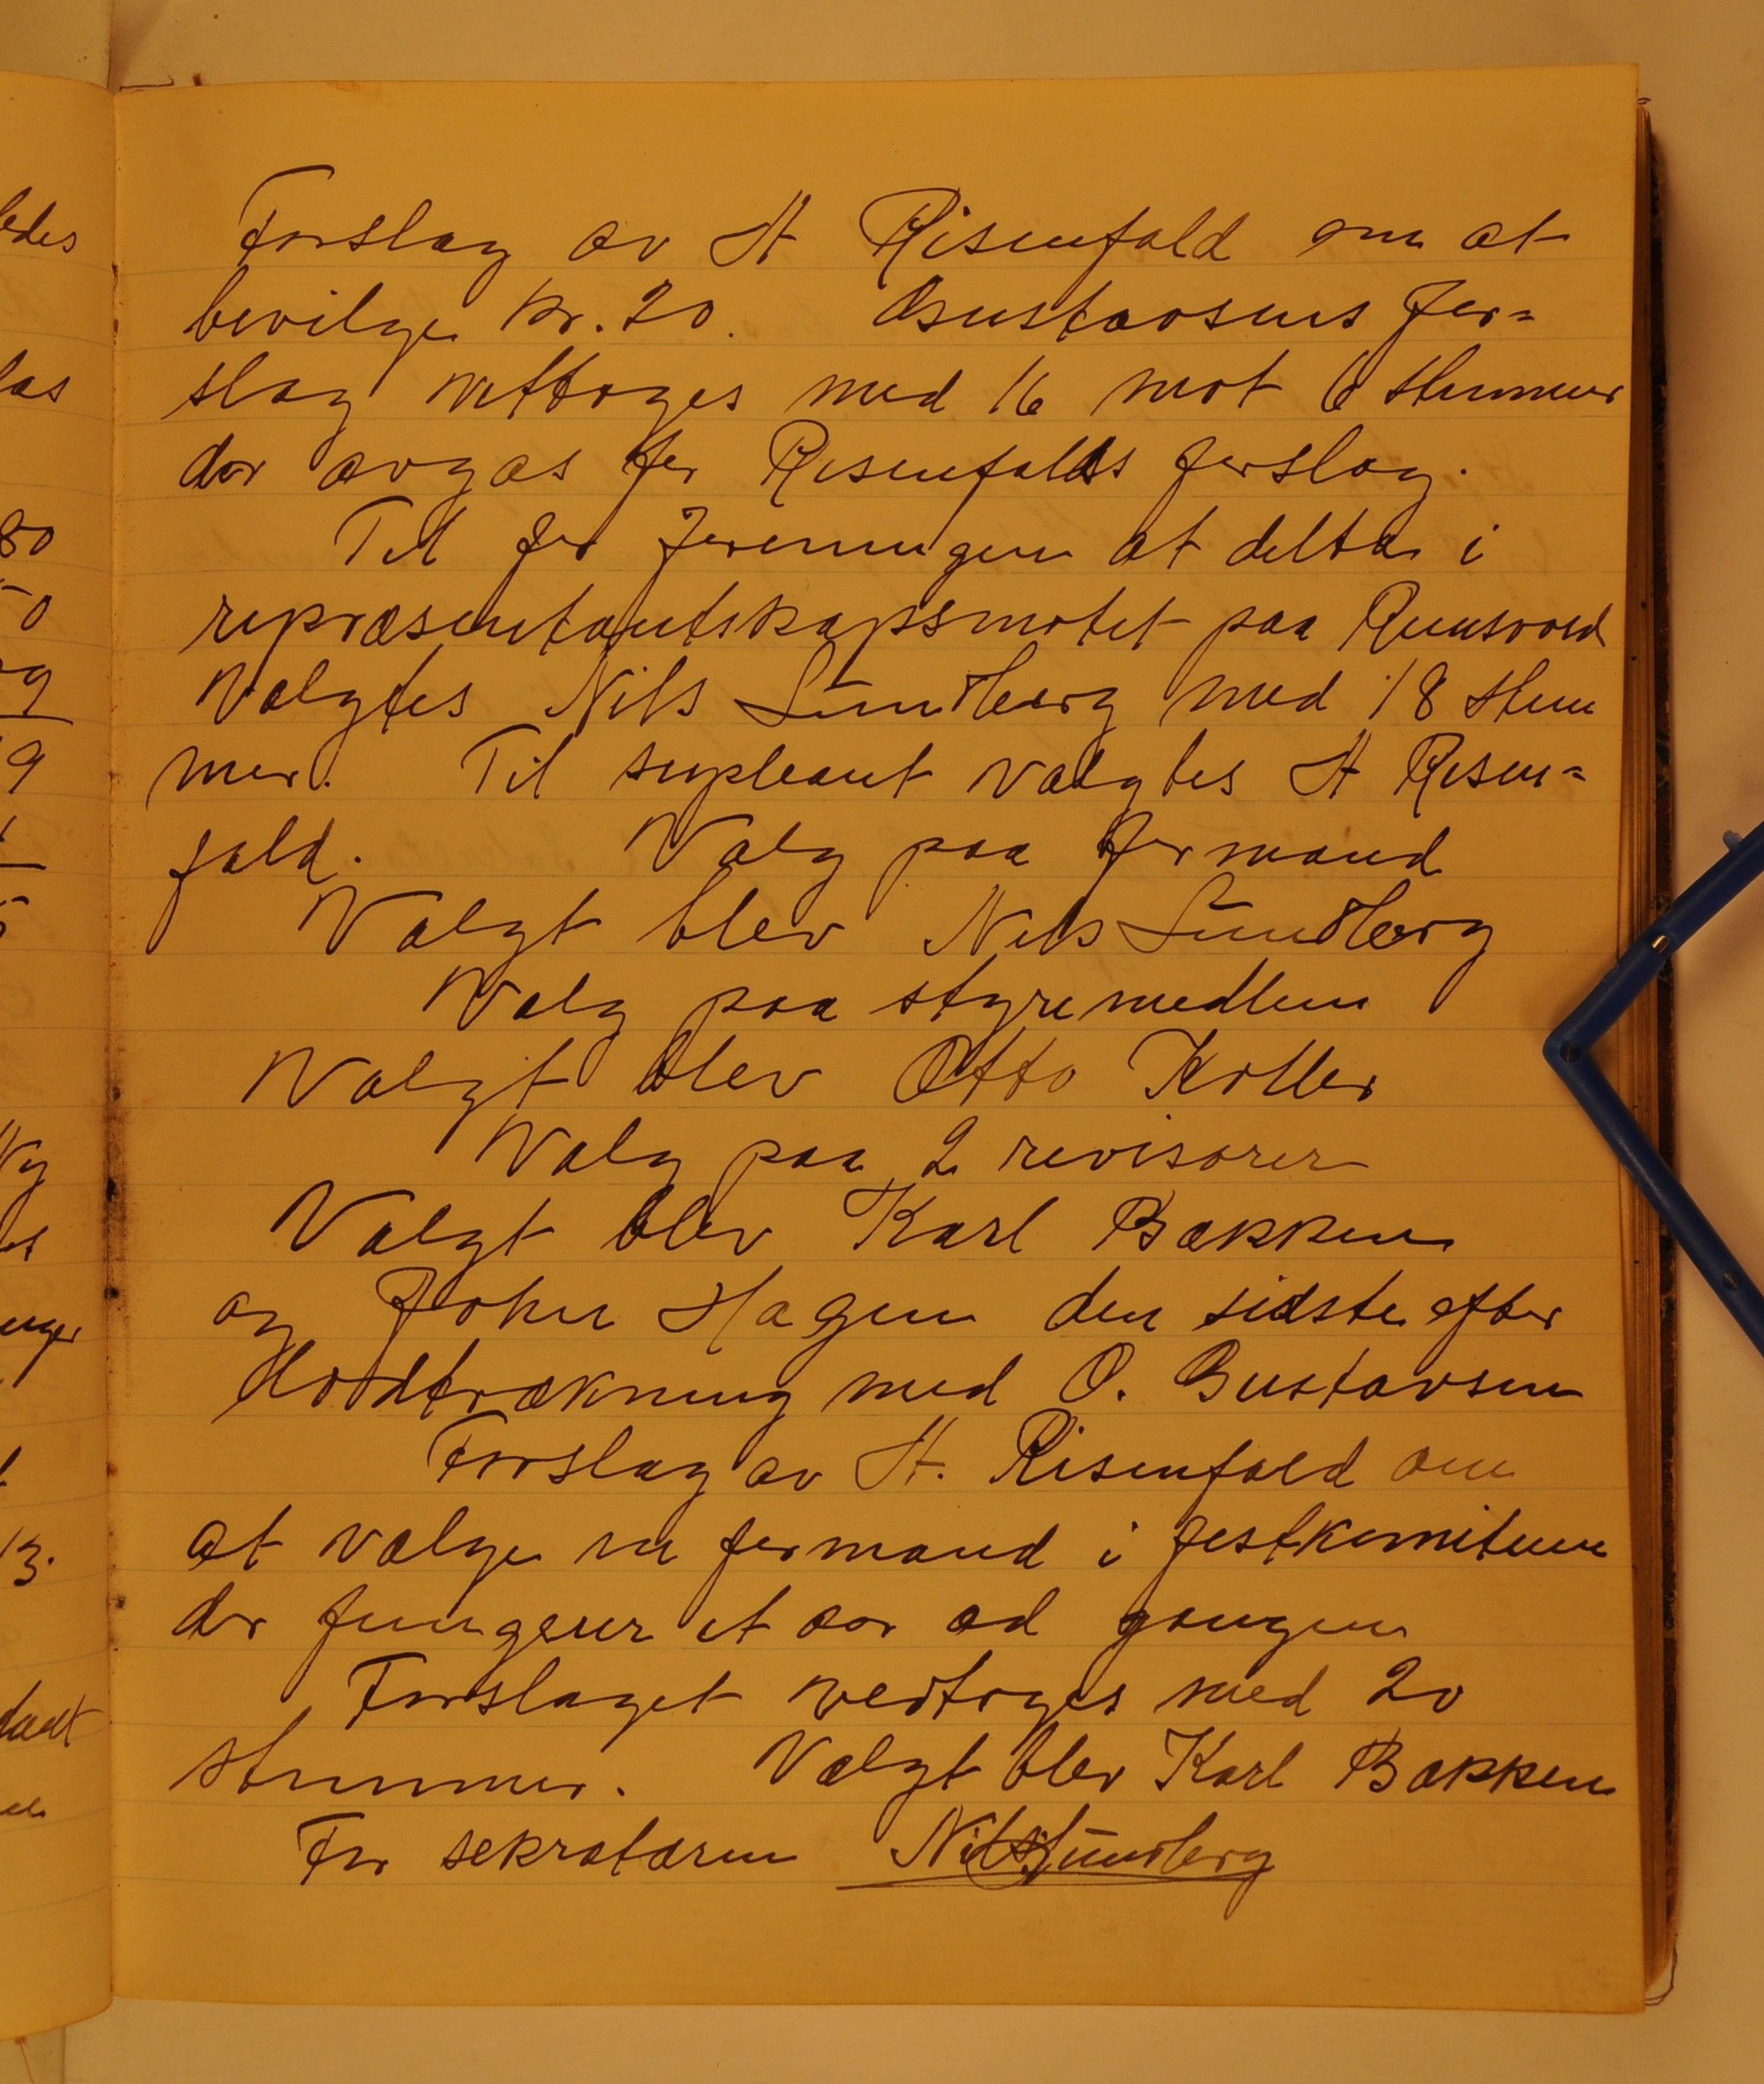 Forslag av H Risenfald om at
bevilge kr. 20. Gustavsens for=
slag vettoges med 16 mot 6 stemmer
der avgas for Risenfalds forslag.
Til for foreningen at delta i
repræsentantskapsmøtet paa
Valgtes Nils Lundberg med 18 stem
mer. Til supleant valgtes H Risen=
fald. Valg paa formand
Valgt blev Nils Lundberg
Valg paa styremedlem
Valgt blev Otto Koller
Valg paa 2 revisorer
Valgt blev Karl Bakken
og John Hagen den sidste efter
lodtrækning med O. Gustavsen
Forslag av H. Risenfald om
at vælge en formand i festkomiteen
der fungerer et aar ad gangen
Forslaget vedtoges med 20
stemmer. Valgt blev Karl Bakken
For sekretæren Nils Lundberg